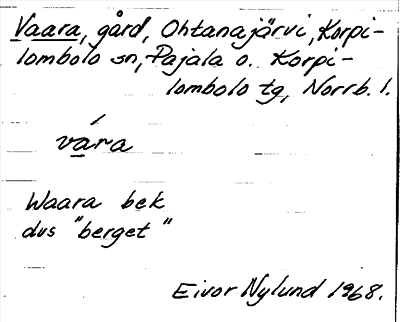 Vaara, gård, Ohtanajärvi, Korpi-
lombolo sn, Pajala o. Korpi-
lombolo tg, Norrb. l.
vára
Waara bek
dvs "berget"
Eivor Nylund 1968.